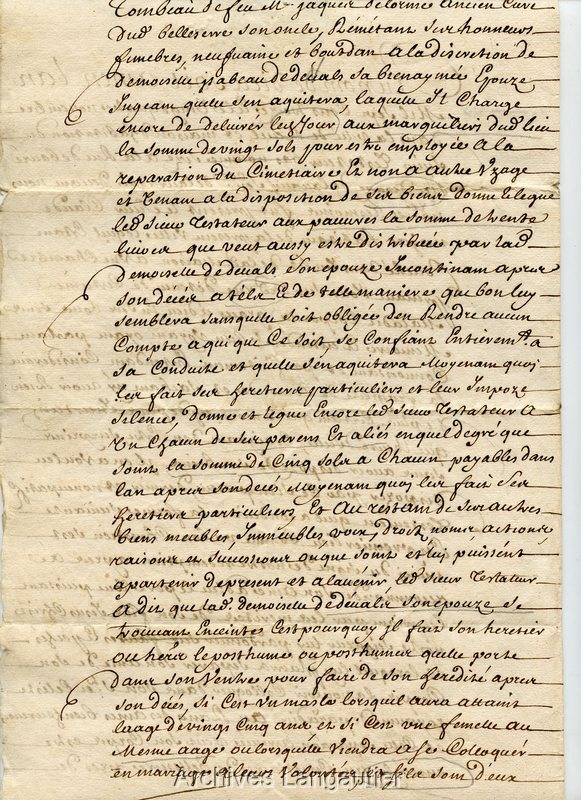 Tombeau de feu Mr. jaques delorme ancien Curé
dud. belleserre son oncle, Remétant ses honneurs
funebres, neufvaine et boutdan a la discretion de
demoiselle isabeau de devals sa bienaymée Epouze
Jugeant quelle sen aquitera, laquelle Il Charge
encore de delivrér lesd. Jour, aux marguiliers dud. lieu
la somme de vingt sols pour estre employée a la
reparation du Cimetiaire Et non a autre Uzage
et Venant a la disposition de ses biens donne & legue
led. sieur Testateur aux pauvres la somme de trente
livres que veut aussy estre distribuée par lad.
demoiselle de devals son epouze Incontinant apres
son décés a télz & de telle maniere que bon luy
semblera sans quelle soit obligée den Rendre aucun
Compte a qui que Ce soit, se Confiant Entieremt. a
sa Conduite et quelle sen aquitera Moyenant quoi
les fait ses heretiers particuliers et leur Impoze
silence, donne et legue Encore led. sieur Testateur a
Un Chacun de ses parens Et aliés en quel degré que
soint la somme de Cinq sols a Chacun payables dans
lan apres son decés Moyenant quoi les fait ses
heretiers particuliers, Et au restant de ses autres
biens meubles, Immeubles, voix, droit, noms, actions,
raisons et successions ou que soint et luy puissent
apartenir de present et a lavenir led. sieur Testateur
a dit que lad. demoiselle de devals son epouze se
trouvant Enceinte C'est pourquoy il fait son heretier
ou herès le posthume ou posthumes quelle porte
dans son Ventre pour faire de son hérédité apres
son décés, si C'est Un masle lorsquil aura attaint
laage de vingt Cinq ans et si C'est une femelle au
Mesme aage ou lorsquelle Viendra a se Colloquér
en mariage a leurs Volontés, Et sils sont deux
Archives Langautier